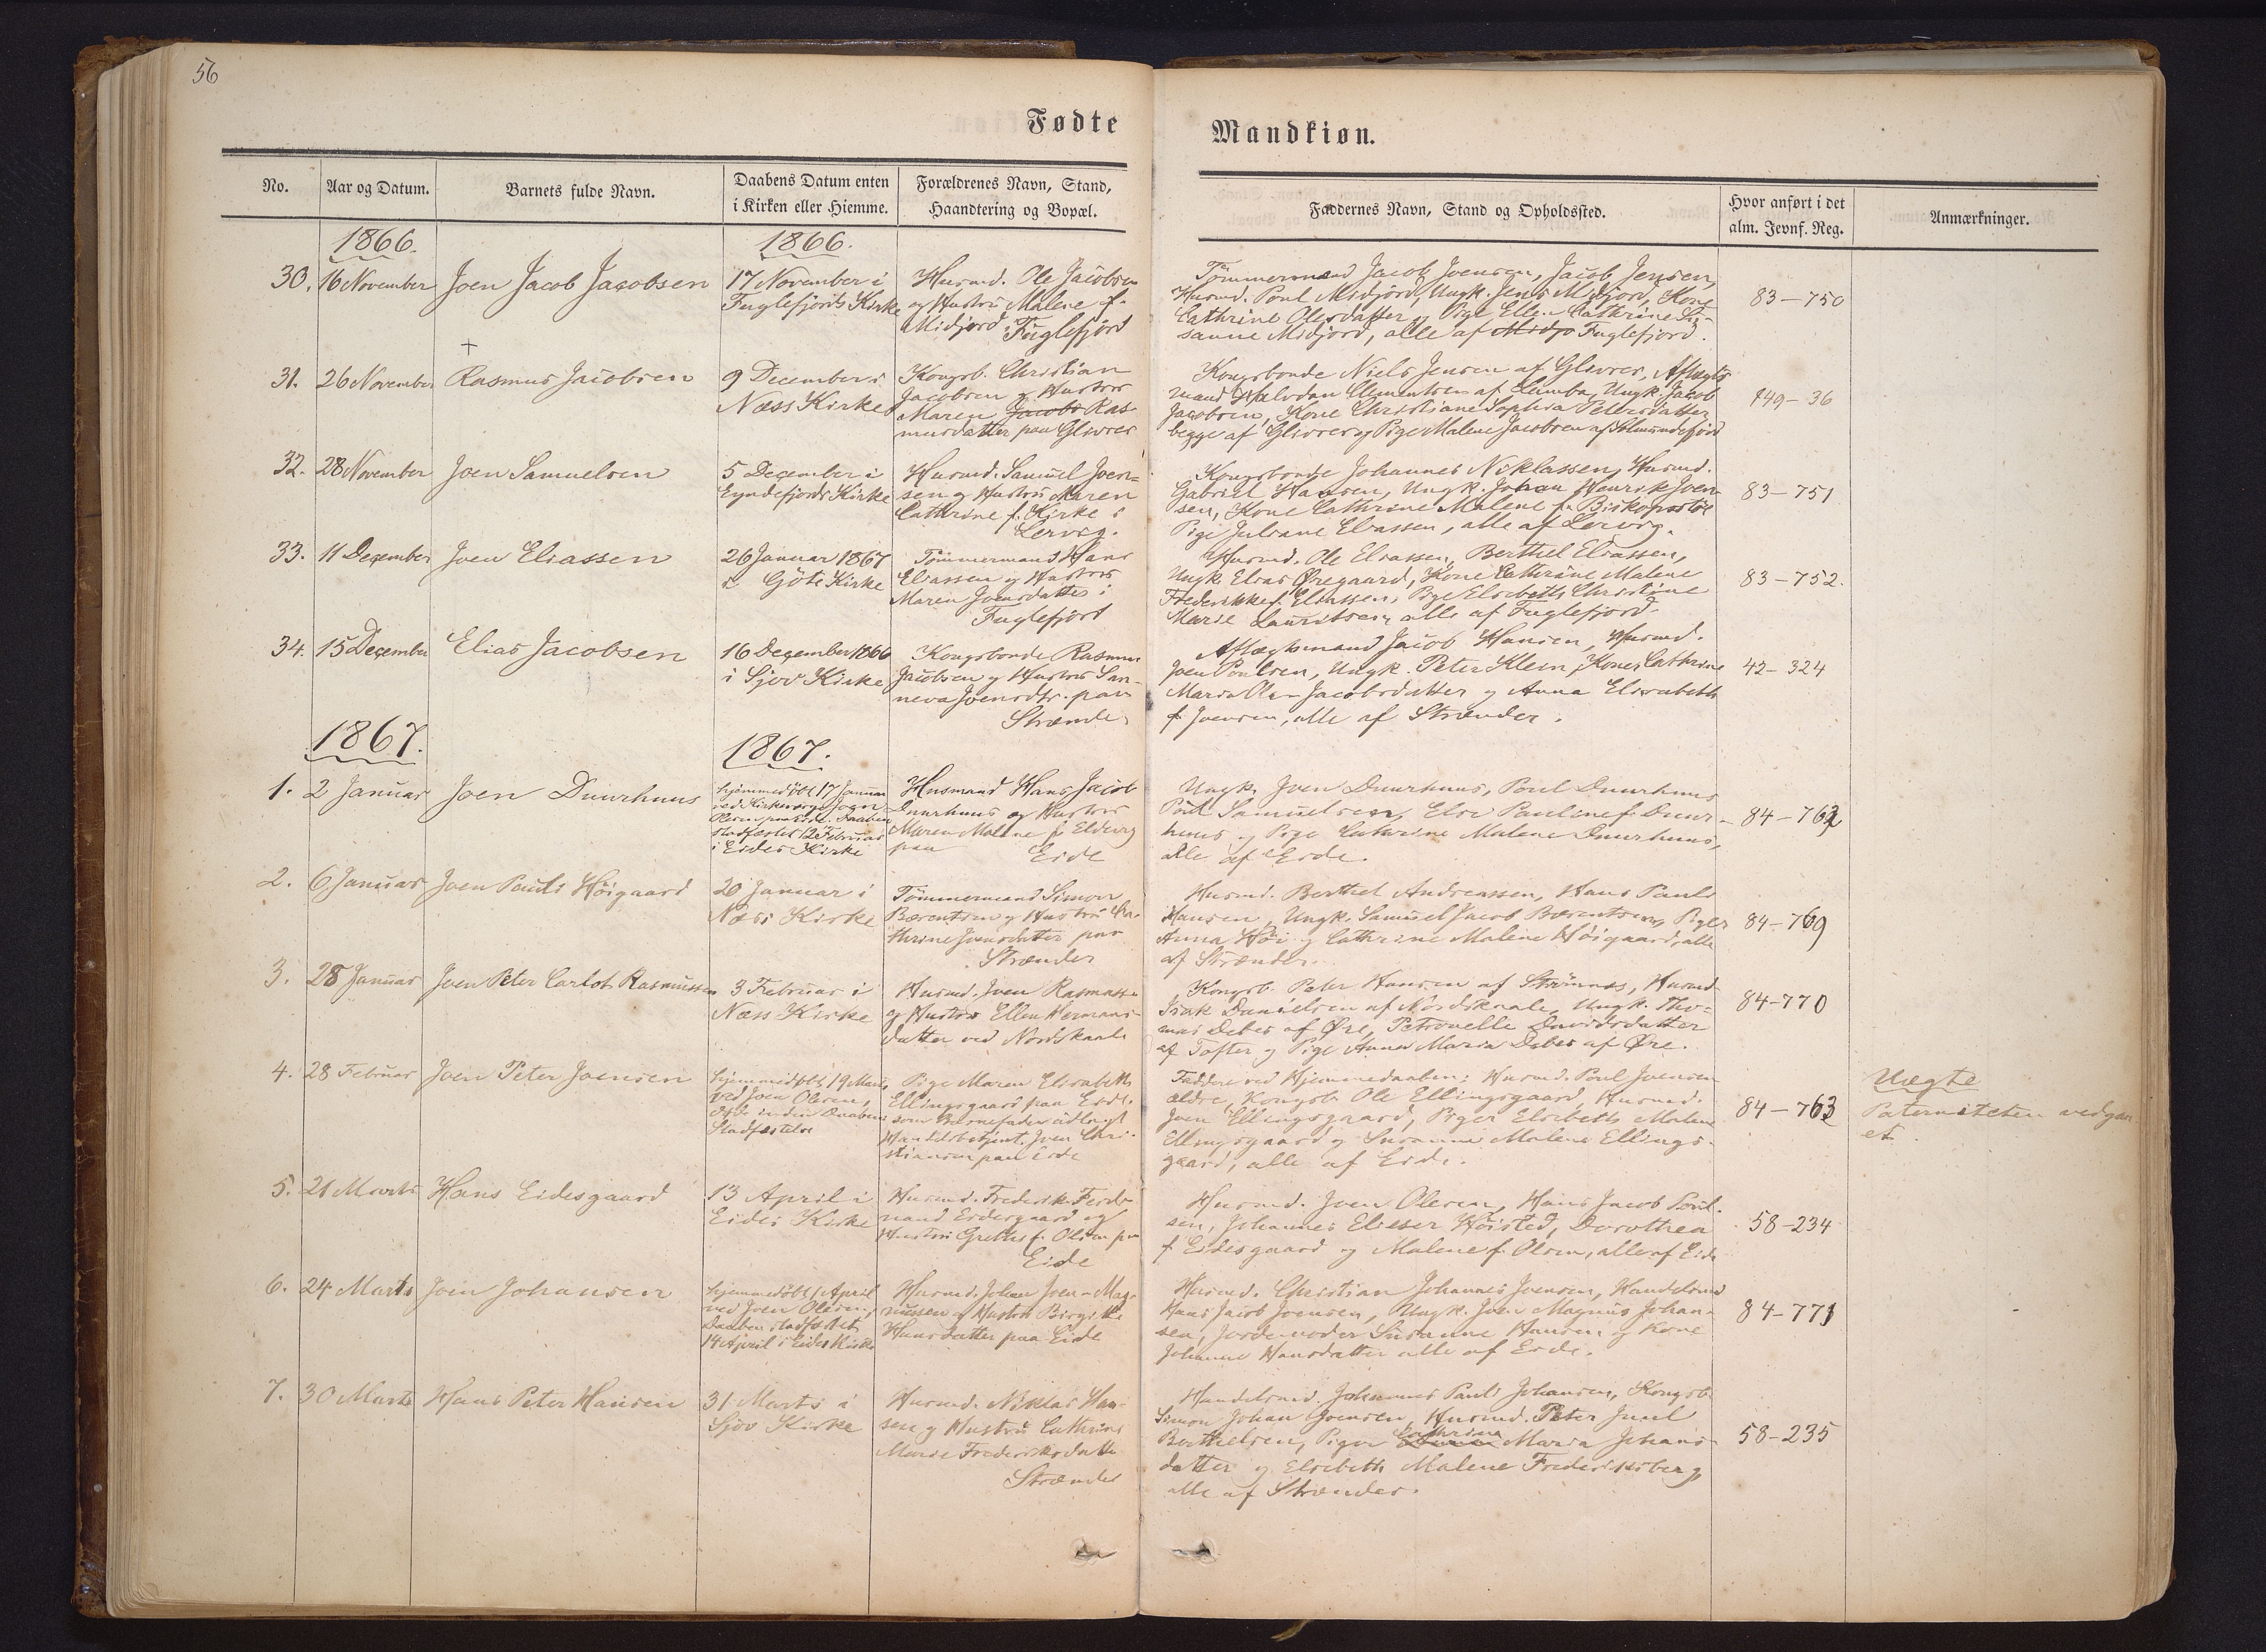 56
Fødte
Mandkiøn.
No.
Aar og Datum.
Barnets fulde Navn.
Daabens Datum enten
i Kirken eller Hiemme.
Forældrenes Navn, Stand,
Haandtering og Bopæl.
Faddernes Navn, Stand og Opholdssted.
Hvor anført i det
alm. Jevnf. Reg.
Anmærkninger.
1866.
1866.
30.
16 November
Joen Jacob Jacobsen
17 November i
Fuglefjords Kirke
Husmd. Ole Jacobsen
og Hustru Malene f.
Midjord i Fuglefjord
Tömmermænd Jacob Joensen, Jacob Jensen,
Husmd. Poul Midjord, Ungk. Jens Midjord, Kone
Cathrine Olesdatter og Pige Elle Cathrine Su-
sanne Midjord, alle af Midjo Fuglefjord.
83-750
†
31.
26 November
Rasmus Jacobsen
9 December i
Næss Kirke
Kongsb. Christian
Jacobsen og Hustru
Maren Jacobs Ras-
musdatter paa Glivrer
Kongsbonde Niels Jensen af Glivrer, Aftægts
mand Halvdan Clementsen af Lamba, Ungk. Jacob
Jacobsen, Kone Christiane Sophia Petersdatter
begge af Glivrer og Pige Malene Jacobsen af Solmundefjord
149-36
32.
28 November
Joen Samuelsen
5 December i
Eyndefjords Kirke
Husmd. Samuel Joen-
sen og Hustru Maren
Cathrine f. Kirke i
Lervig.
Kongsbonde Johannes Niklassen, Husmd.
Gabriel Hansen, Ungk. Johan Henrik Joen-
sen, Kone Cathrine Malene f. Biskopstöe
Pige Juliane Eliassen, alle af Lervig.
83-751
33.
11 December
Joen Eliassen
26 Januar 1867
i Göte Kirke
Tömmermand Hans
Eliassen og Hustru
Maren Joensdatter i
Fuglefjord
Husmd. Ole Eliassen, Berthel Eliassen,
Ungk. Elias Øregaard, Kone Cathrine Malene
Frederikke f. Eliassen, Pige Elsebeth Christine
Marie Lauritsen, alle af Fuglefjord.
83-752.
34.
15 December
Elias Jacobsen
16 December 1866
i Sjov Kirke
Kongsbonde Rasmus
Jacobsen og Hustru San-
neva Joensdtr. paa
Strænder
Aftægtsmand Jacob Hansen, Husmd.
Joen Poulsen, Ungk. Peter Klein, Koner Cathrine
Maria Ole-Jacobsdatter og Anna Elisabeth
f. Joensen, alle af Strænder.
42-324
1867.
1867.
1.
2 Januar
Joen Duurhuus
hjemmedöbt 17 Januar
ved Kirkeværge Joen
Olesen paa Eide. Daaben
stadfæstet 12 Februar
i Eides Kirke
Husmand Hans Jacob
Duurhuus og Hustru
Maren Malene f. Eldevig
paa Eide
Ungk. Joen Duurhuus, Poul Duurhuus
Poul Samuelsen, Else Pauline f. Duur-
huus og Pige Cathrine Malene Duurhuus,
alle af Eide.
84-762
2.
6 Januar
Joen Pauli Höigaard
20 Januar i
Næss Kirke
Tömmermand Simon
Bærentsen og Hustru Ca-
thrine Joensdatter paa
Strænder
Husmd. Berthel Andreassen, Hans Pauli
Hansen, Ungk. Samuel Jacob Bærentsen, Piger
Anna Höi og Cathrine Malene Höigaard, alle
af Strænder.
84-769
3.
28 Januar
Joen Peter Carlot Rasmussen
3 Februar i
Næss Kirke
Husmd. Joen Rasmusse
og Hustru Ellen Hermans-
datter ved Nordskaale
Kongsb. Peter Hansen af Strömnæs, Husmd
Isak Danielsen af Nordskaale, Ungk. Tho-
mas Debes af Øre, Petronelle Davidsdatter
af Tofter og Pige Anna Maria Debes af Øre.
84-770
4.
28 Februar
Joen Peter Joensen
hjemmedöbt 19 Marts
ved Joen Olesen,
döde inden Daabens
Stadfæstelse
Pige Maren Elisabeth
Ellingsgaard paa Eide.
som Barnefader udlagt
Handelsbetjent Joen Chri-
stiansen paa Eide
Faddere ved Hjemmedaaben: Husmd. Poul Joensen
ældre, Kongsb. Ole Ellingsgaard, Husmd.
Joen Ellingsgaard, Piger Elsebeth Malene
Ellingsgaard og Susanne Malene Ellings-
gaard, alle af Eide.
84-763
Uægte
Paterniteten vedgaa
et.
5.
21 Marts
Hans Eidesgaard
13 April i
Eides Kirke
Husmd. Frederik Ferdi-
nand Eidesgaard og
Hustru Grethe f. Olsen paa
Eide
Husmd. Joen Olesen, Hans Jacob Poul-
sen, Johannes Elieser Höisted, Dorothea
f. Eidesgaard og Malene f. Olsen, alle af Eide
58-234
6.
24 Marts
Joen Johansen
hjemmedöbt 1 April
ved Joen Olesen,
Daaben stadfæstet
14 April i Eides Kirke
Husmd. Johan Joen-Mag-
nussen og Hustru Birgithe
Hansdatter paa Eide
Husmd. Christian Johannes Joensen, Handelsmd
Hans Jacob Joensen, Ungk. Joen Magnus Johan-
sen, Jordemoder Susanne Hansen og Kone
Johanne Hansdatter alle af Eide.
84-771
7.
30 Marts
Hans Peter Hansen
31 Marts i
Sjov Kirke
Husmd. Niklas Han-
sen og Hustru Cathrine
Marie Frederiksdatter
Strænder
Handelsmd. Johannes Pauli Johansen, Kongsb.
Simon Johan Joensen, Husmd. Peter Juul
Berthelsen, Piger Cathrine Maria Johans-
datter og Elsebeth Malene Frederiksberg,
alle af Strænder.
58-235